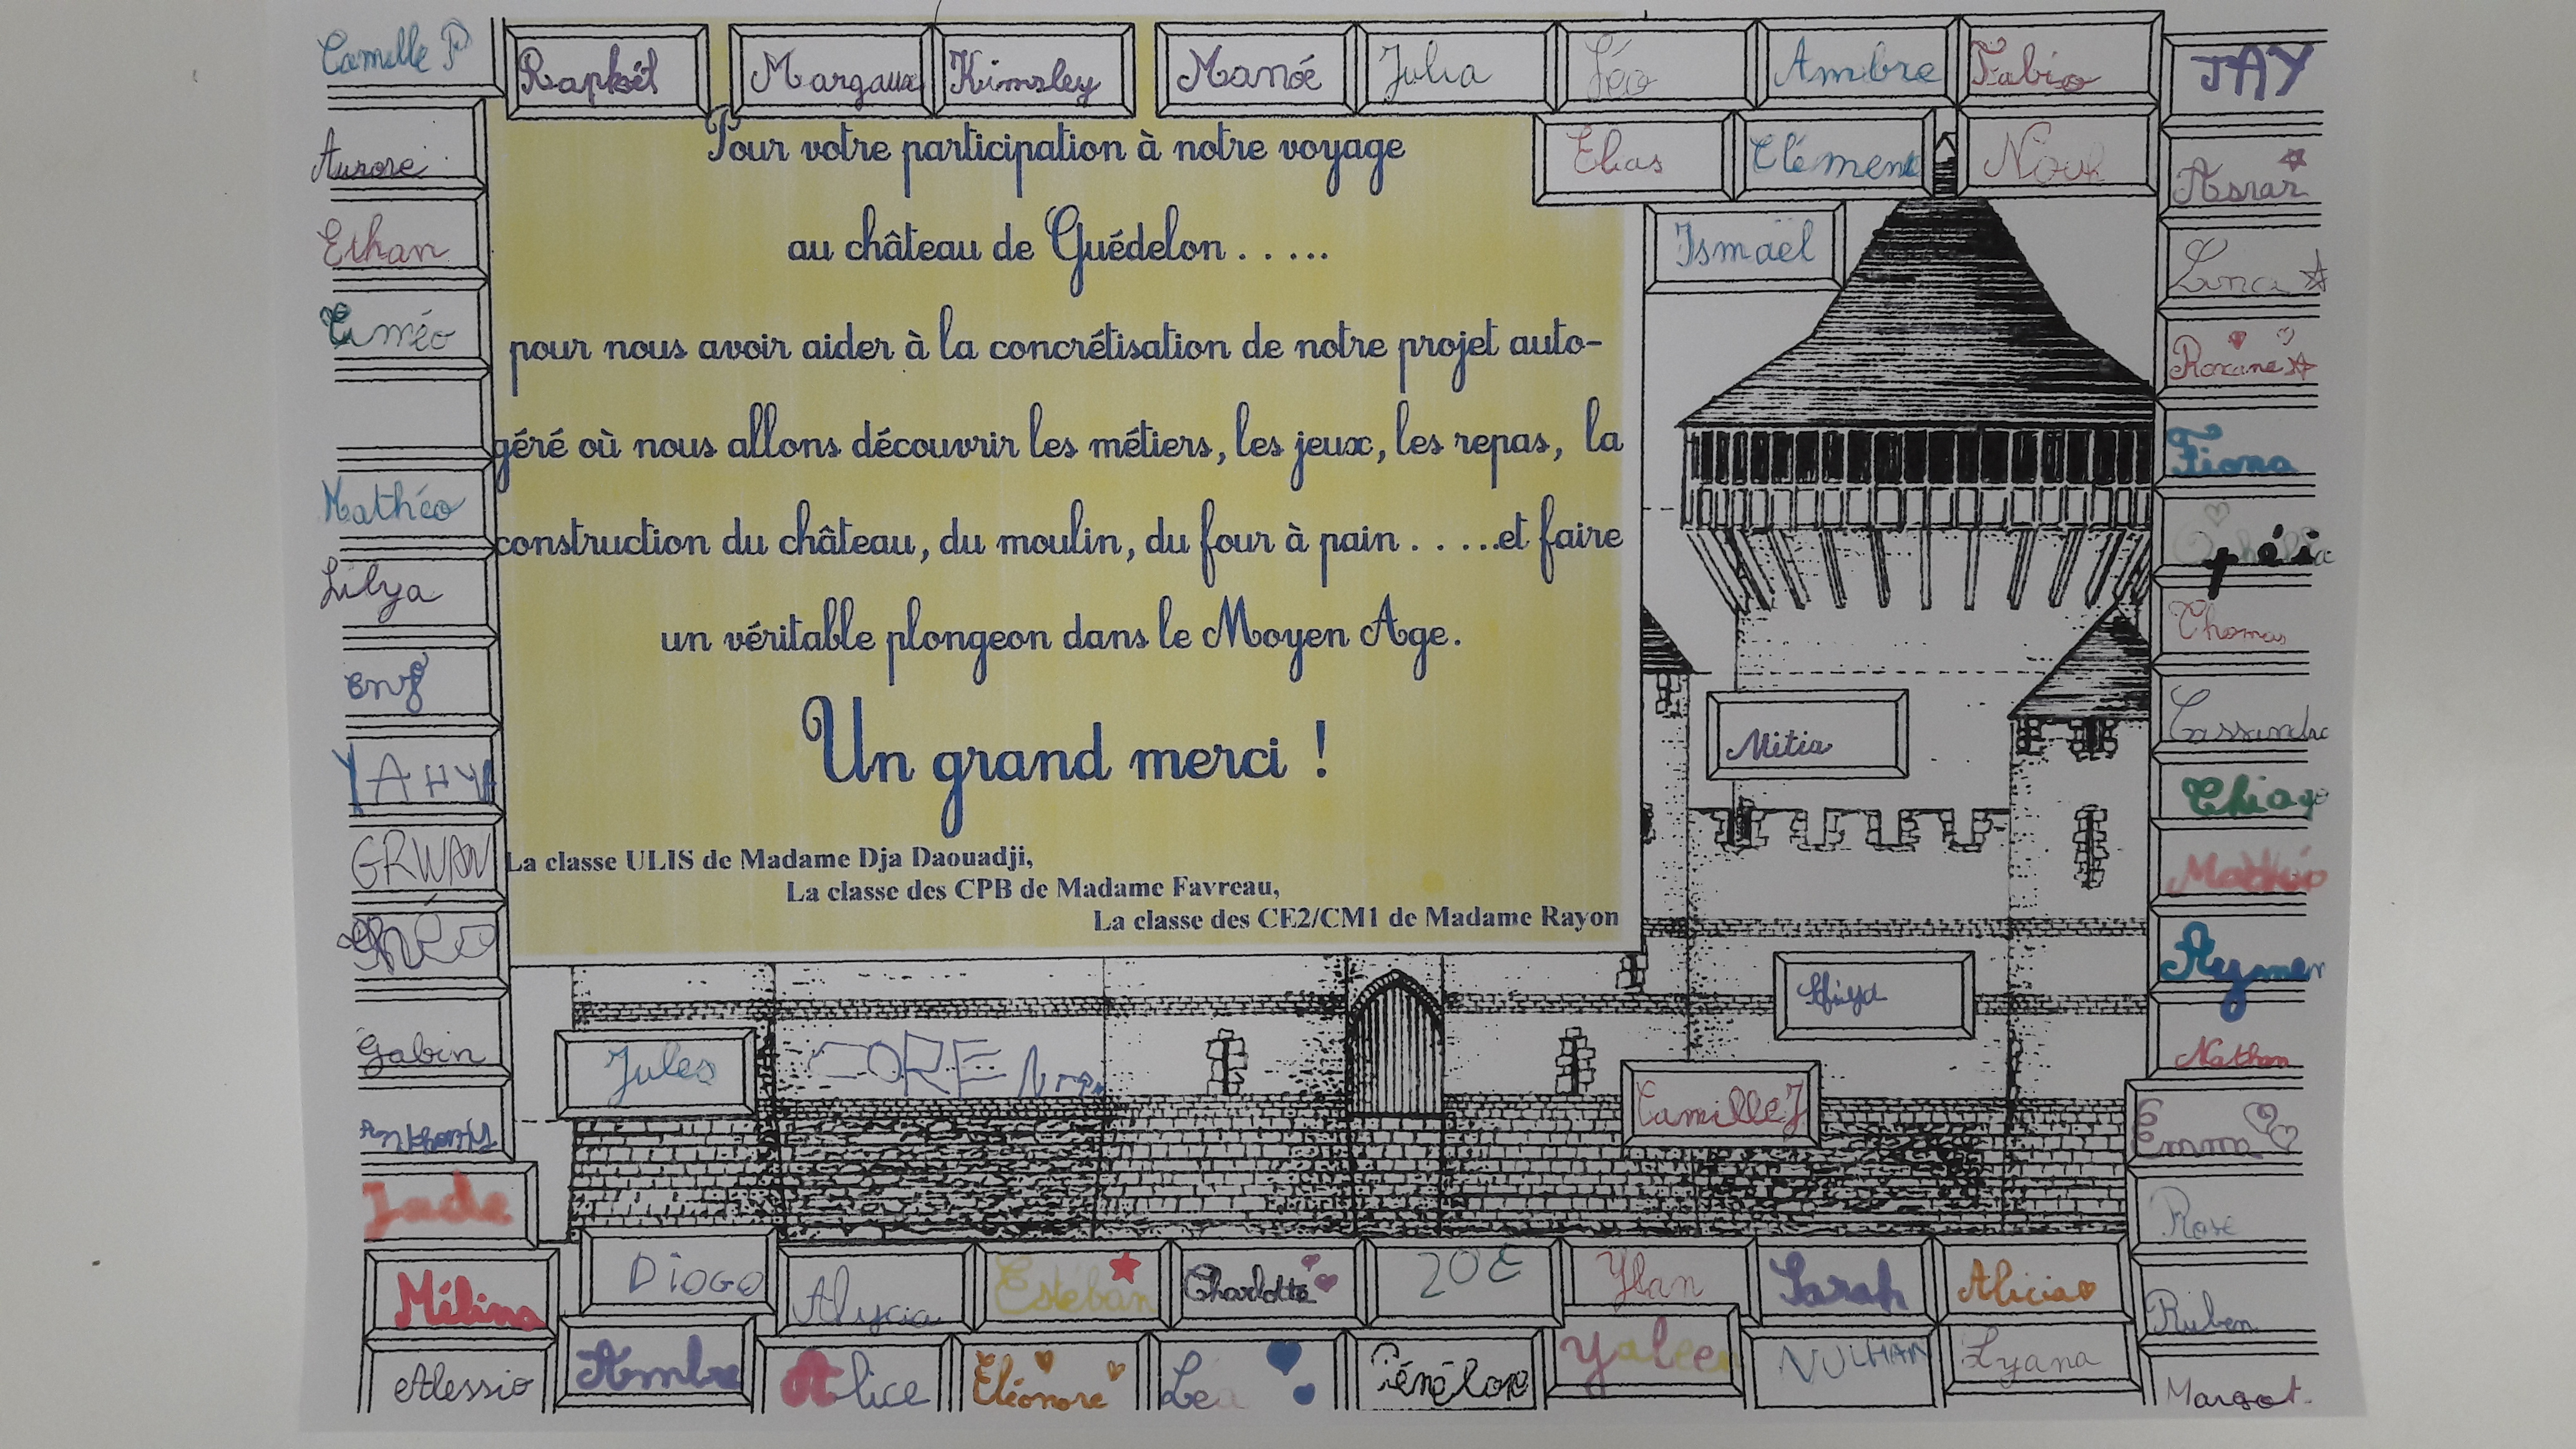 Camille P
Raphaël
Margaux
Kimsley
Manoé
Julia
Léo
Ambre
Fabio
JAY
Elias
Clément
Nouh
Ismaël
Aurore
Ethan
Timéo
Mathéo
Lilya
YAHYA
Gabin
Anthony
Jade
Pour votre participation à notre voyage
au château de Guédelon . . . . .
pour nous avoir aider à la concrétisation de notre projet auto-
géré où nous allons découvrir les métiers, les jeux, les repas, la
construction du château, du moulin, du four à pain . . . ..et faire
un véritable plongeon dans le Moyen Age.
Un grand merci !
La classe ULIS de Madame Dja Daouadji,
La classe des CPB de Madame Favreau,
La classe des CE2/CM1 de Madame Rayon
Asrar
Lina
Roxane
Fiona
Ophélia
Thomas
Cassandra
Thiago
Mathéo
Aymen
Nathan
Emma
Rose
Ruben
Margot
Mitia
Jules
CORENTIN
Camille J
Mélina
Diogo
Alycia
Estéban
Charlotte
ZOÉ
Ylan
Sarah
Alicia
Alessio
Ambre
Alice
Eléonore
Léa
Pénélope
Yaleen
Lyana